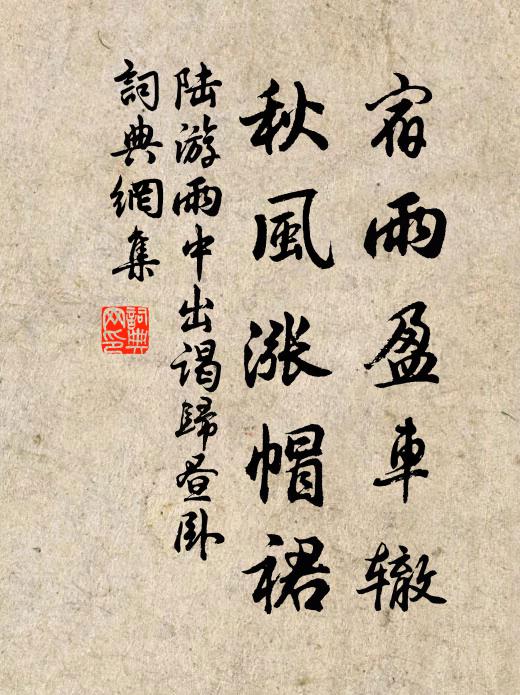 宿雨盈車辙
秋風漲帽裙
陆游雨中出謁歸昼卧
詞典網集
詞典网印